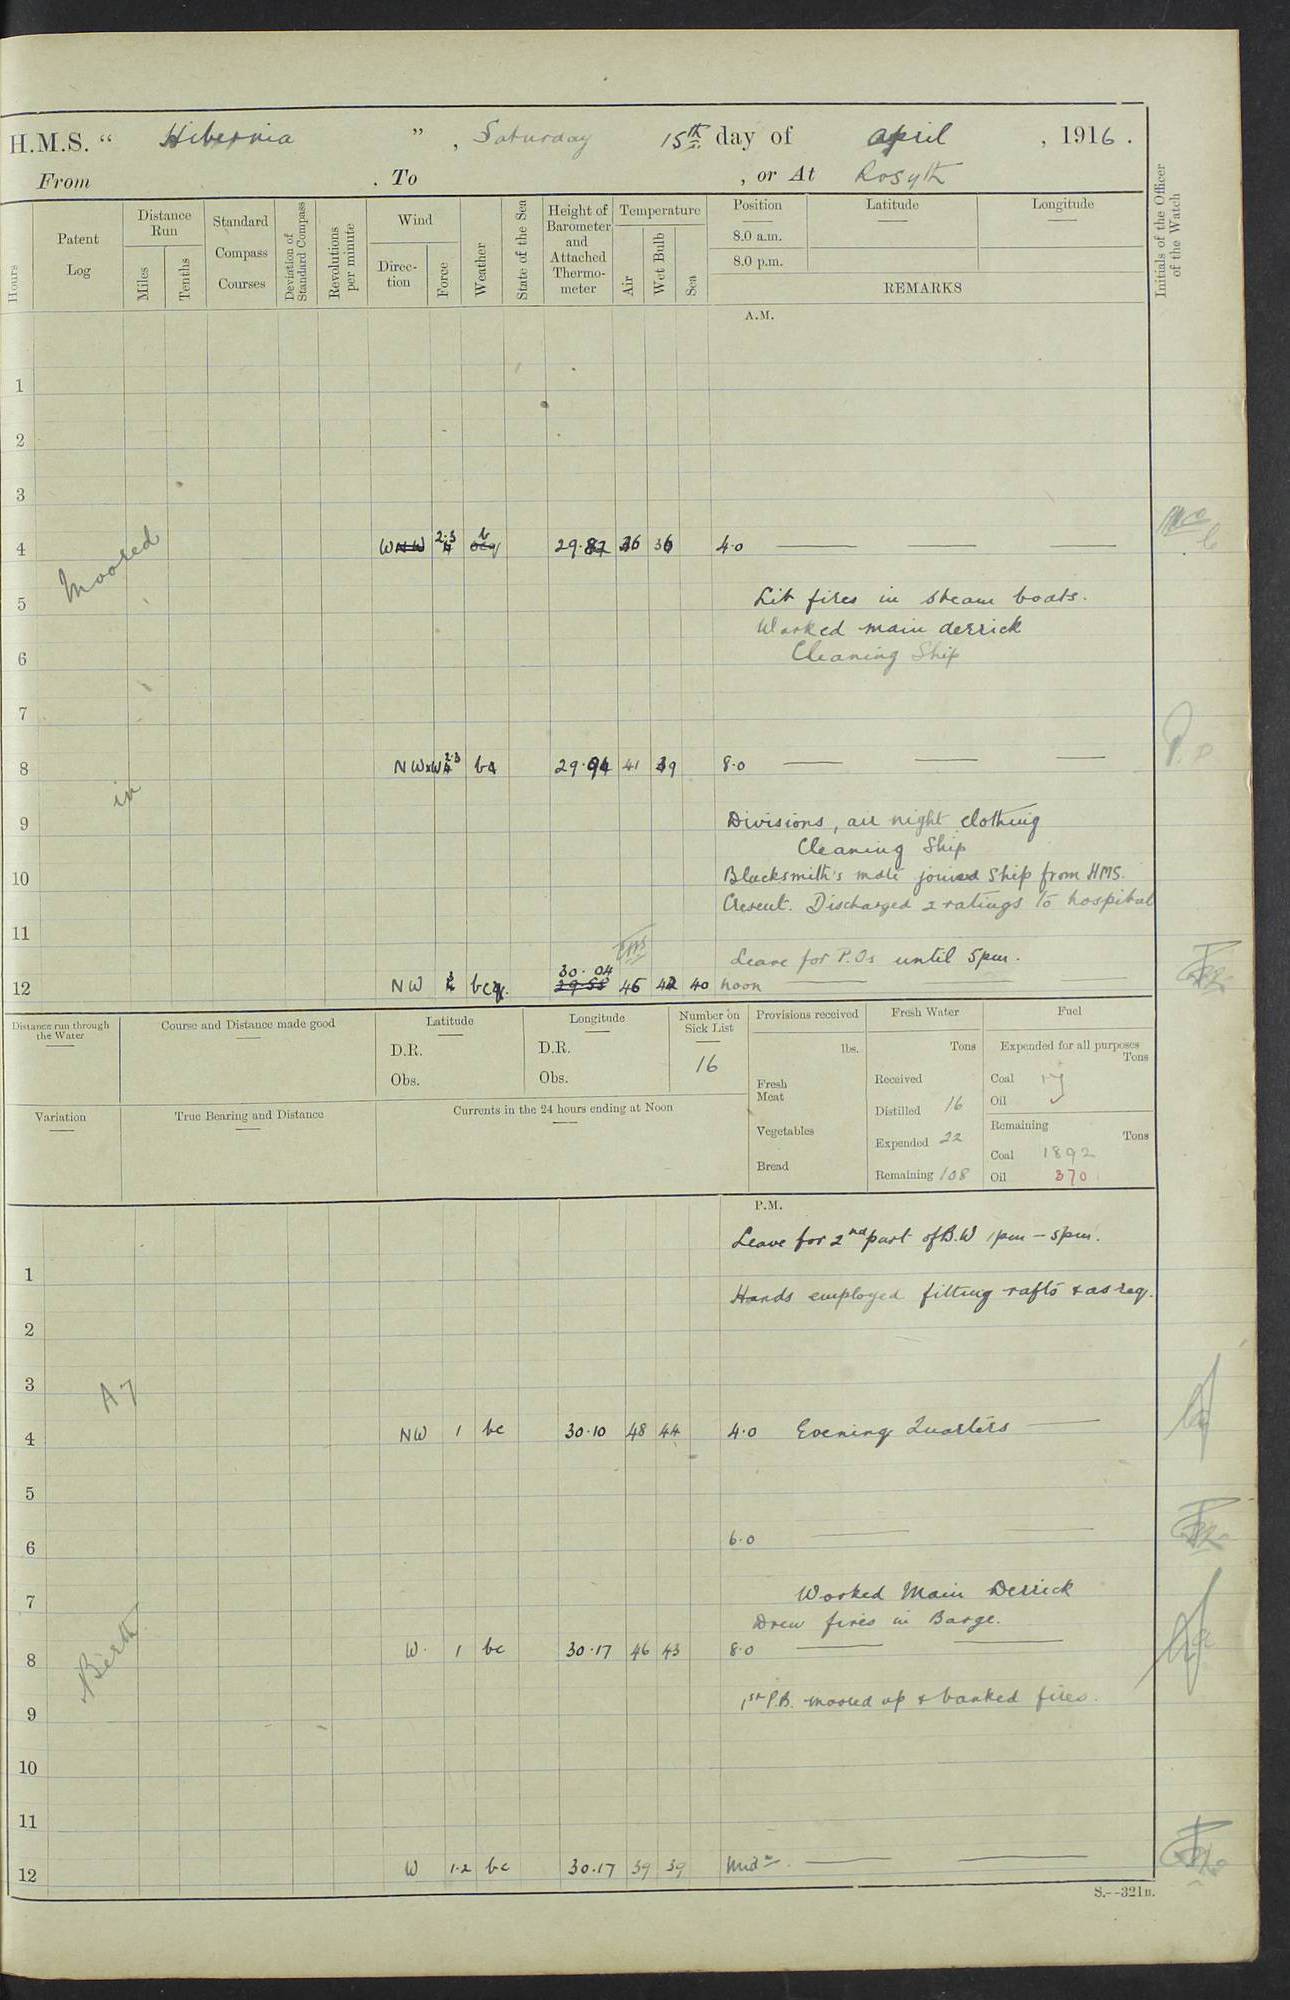 H.M.S. " Hibernia ", Saturday 15th day of April, 1916.
From . To , or At Rosyth
Hours
Patent Log
Distance Run
Miles
Tenths
Standard Compass Courses
Deviation of Standard Compass
Revolutions per minute
Wind
Direction
Force
Weather
State of the Sea
Height of Barometer and Attached Thermometer
Temperature
Air
Wet Bulb
Sea
Position
Latitude
Longitude
8.0 a.m.
8.0 p.m.
REMARKS
Initials of the Officer of the Watch
A.M.
1
2
3
4 W 2.3 b 36 36 4.0
Moored
5 Lit fires in steam boats.
Worked main derrick
6 Cleaning Ship
7
8 NWxW 2.3 29.94 41 39 8.0
in
9 Divisions, air night clothing
Cleaning Ship
10 Blacksmith's mate joined Ship from HMS.
Cresent. Discharged 2 ratings to hospital
11
Leave for P.Os until 5pm.
30.04
12 NW 29.58 45 42 40 noon
Distance run through the Water
Course and Distance made good
Latitude
D.R.
Obs.
Longitude
D.R.
Obs.
Number on Sick List
16
Provisions received
lbs.
Fresh Meat
Vegetables
Bread
Fresh Water
Tons
Received
Distilled 16
Expended 22
Remaining 108
Fuel
Expended for all purposes
Tons
Coal
Oil
Remaining
Tons
Coal 1892
Oil 370
Variation
True Bearing and Distance
Currents in the 24 hours ending at Noon
P.M.
Leave for 2nd part of B.W 1pm - 5pm.
1
Hands employed fitting rafts & as req.
2
3
A7
4 NW 1 bc 30.10 48 44 4.0 Evening Quarters
5
6 6.0
7 Worked Main Derrick
Drew fires in Barge.
8 W. 1 bc 30.17 46 43 8.0
Berth
1st P.B. moored up & banked fires.
9
10
11
12 W 1.2 bc 30.17 39 39 Midt.
S.--321B.